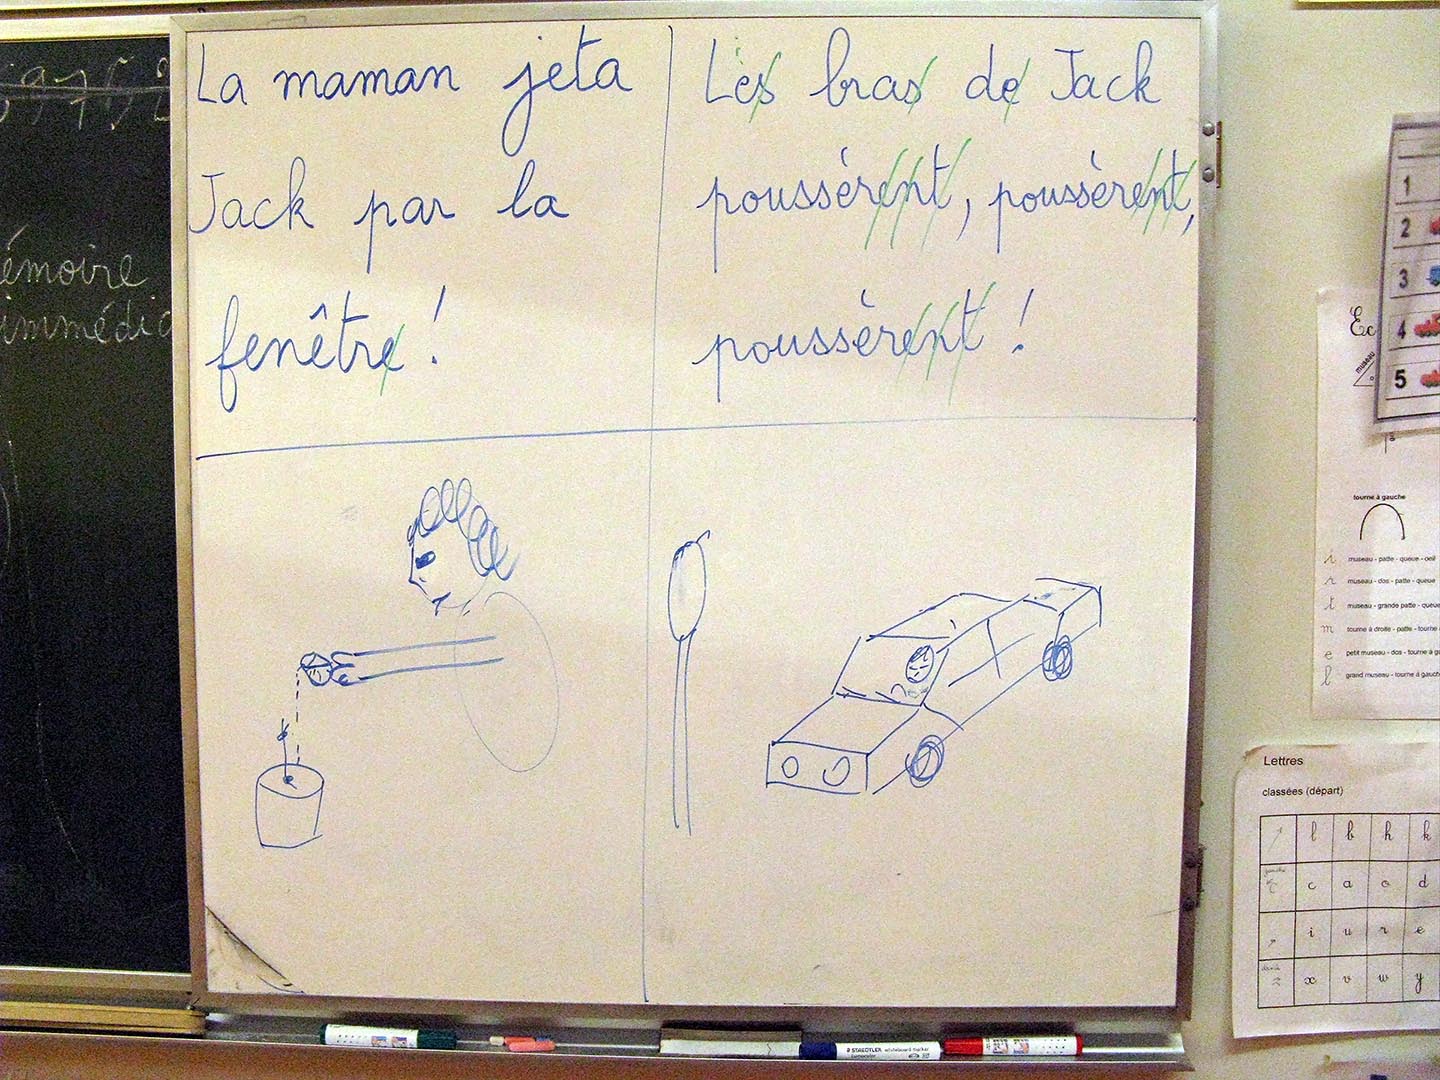 La maman jeta
Jack par la
fenêtre !
Les bras de Jack
poussèrent, poussèrent,
poussèrent !
émoire
immédia
1
2
3
4
5
Ec
museau
tourne à gauche
i museau - patte - queue - oeil
r museau - dos - patte - queue
t museau - grande patte - queue
m tourne à droite - patte - tourne
e petit museau - dos - tourne à
l grand museau - tourne à gauche
Lettres
classées (départ)
l b h k
c a o d
i u r e
x v w y
STAEDTLER whiteboard marker